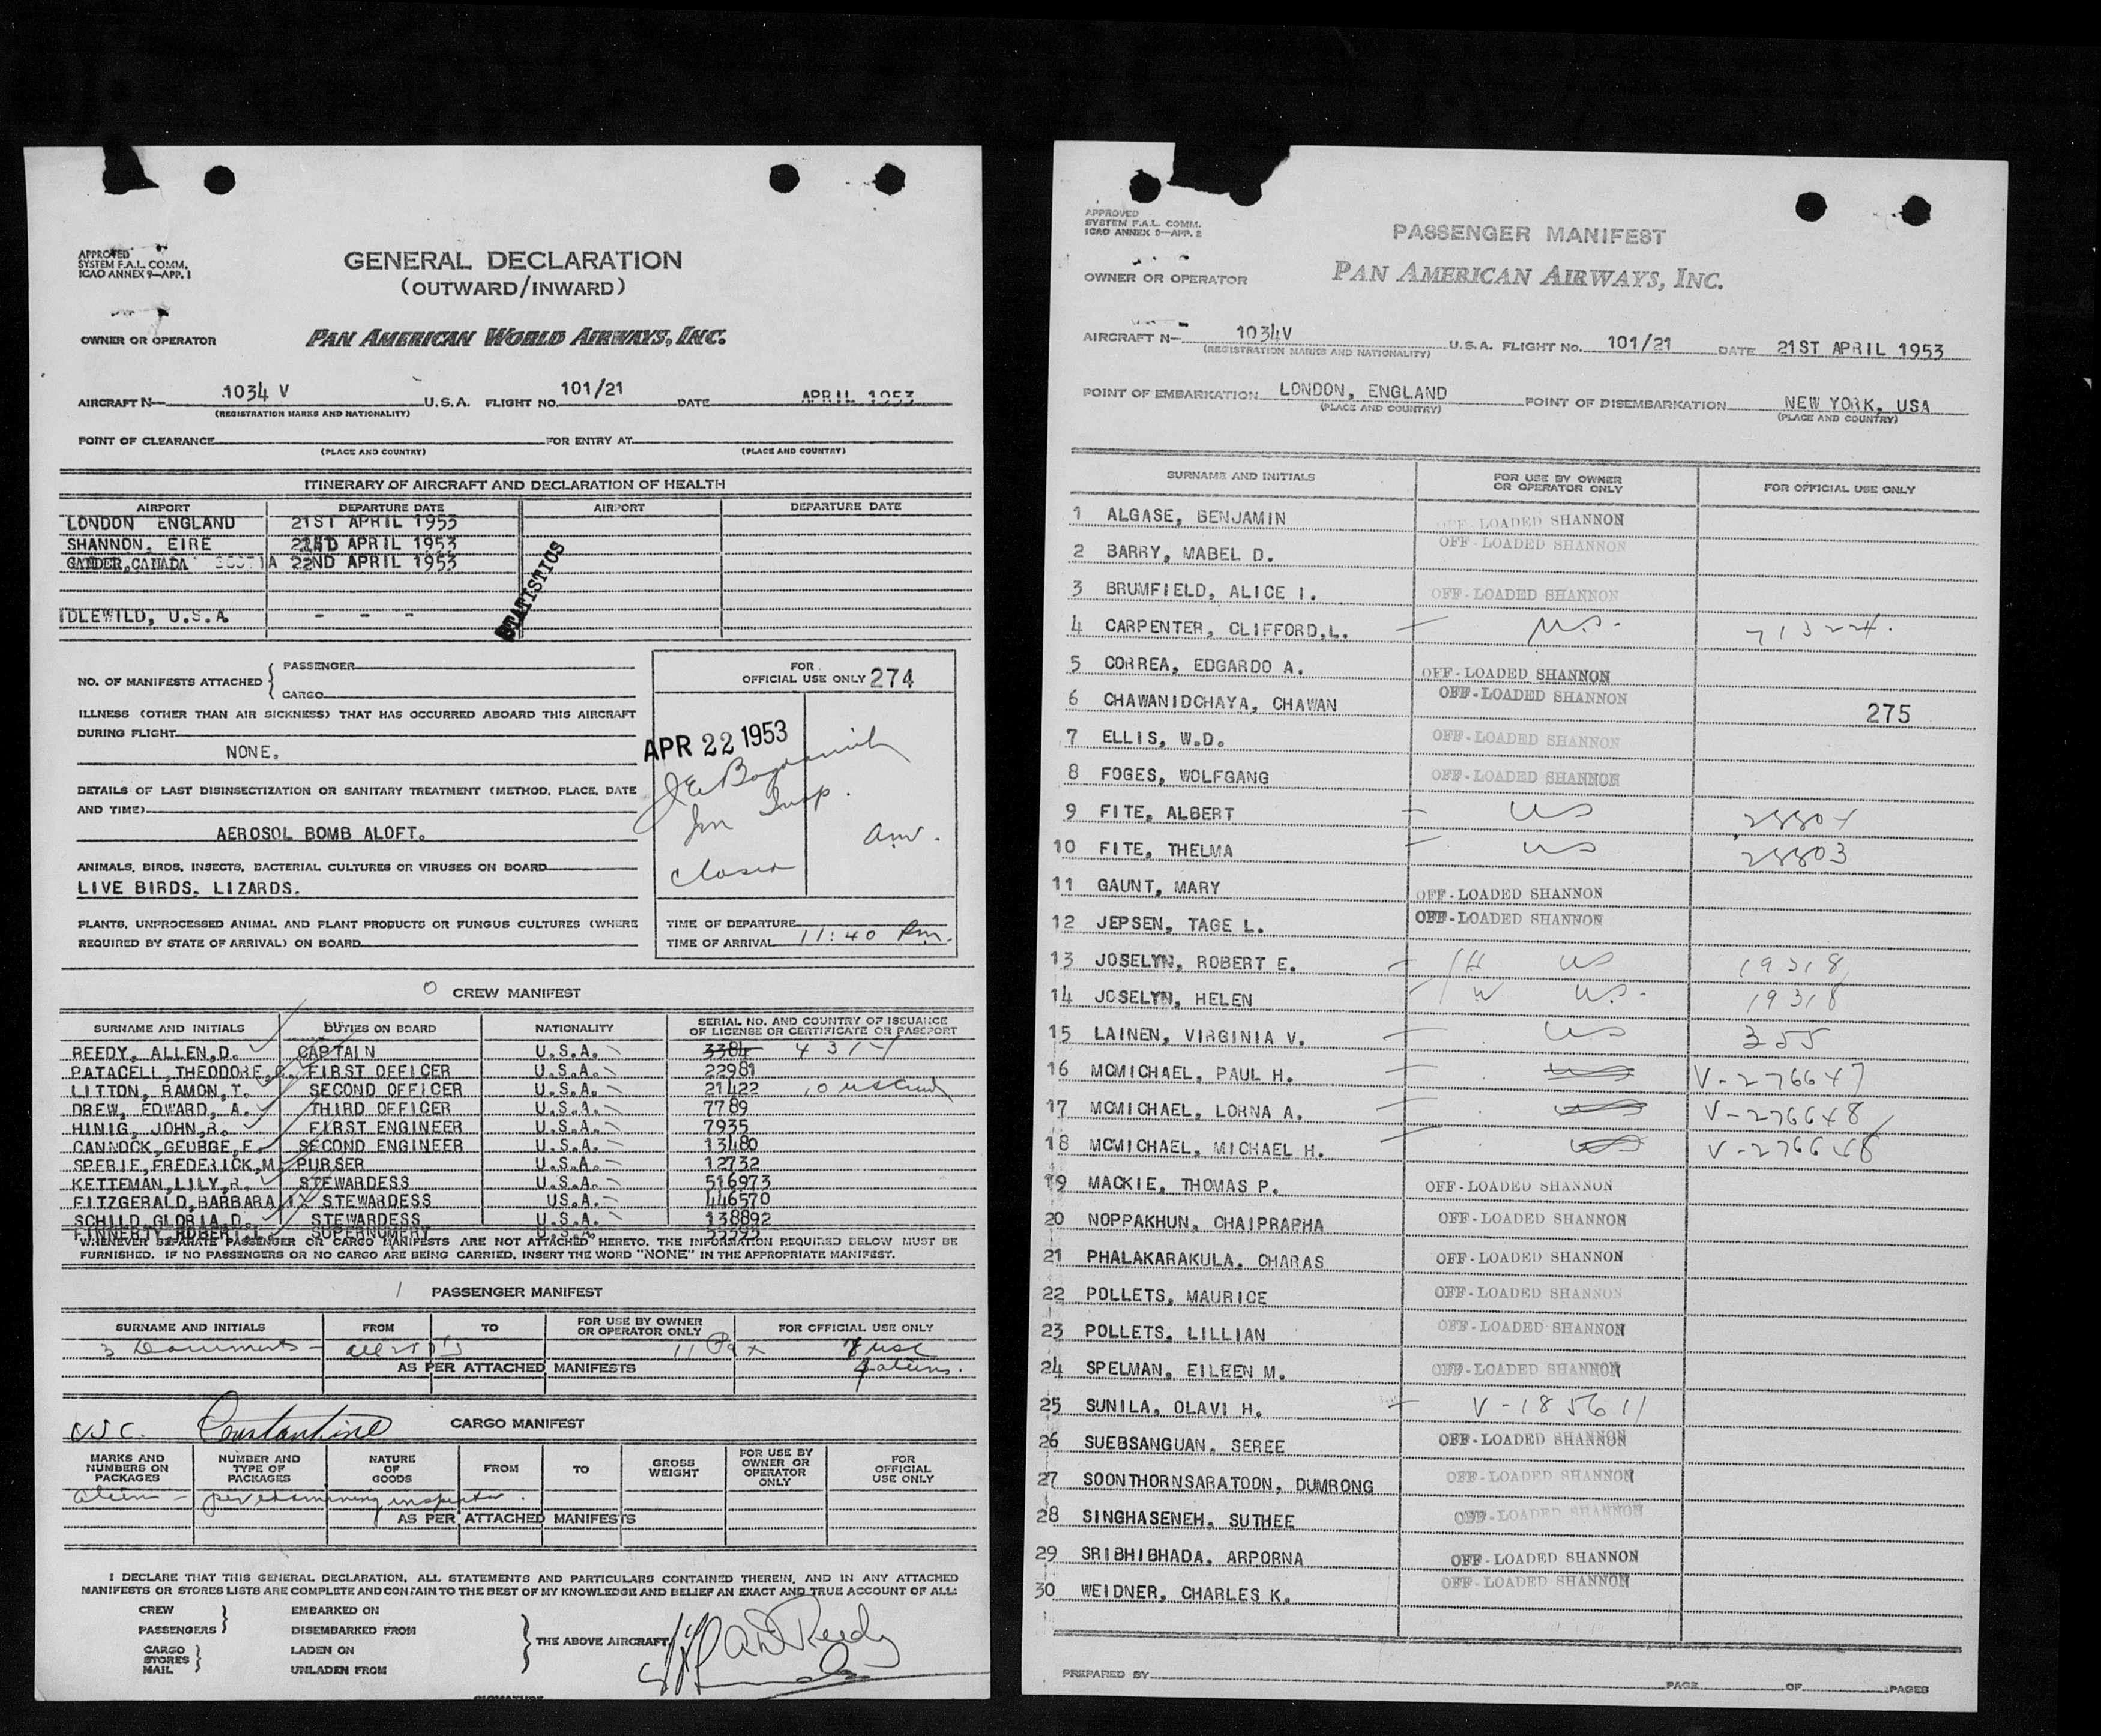 APPROVED
SYSTEM F.A.L. COMM.
ICAO ANNEX 9—APP. 1
GENERAL DECLARATION
(OUTWARD/INWARD)
OWNER OR OPERATOR
PAN AMERICAN WORLD AIRWAYS, INC.
AIRCRAFT N— 1034 V U.S.A. FLIGHT NO. 101/21 DATE APRIL 1953
(REGISTRATION MARKS AND NATIONALITY)
POINT OF CLEARANCE FOR ENTRY AT
(PLACE AND COUNTRY) (PLACE AND COUNTRY)
ITINERARY OF AIRCRAFT AND DECLARATION OF HEALTH
AIRPORT DEPARTURE DATE AIRPORT DEPARTURE DATE
LONDON ENGLAND 21ST APRIL 1953
SHANNON, EIRE APRIL 1953
GANDER, CANADA 22ND APRIL 1953
STATISTICS
IDLEWILD, U.S.A. - - -
NO. OF MANIFESTS ATTACHED { PASSENGER
CARGO
FOR
OFFICIAL USE ONLY 274
ILLNESS (OTHER THAN AIR SICKNESS) THAT HAS OCCURRED ABOARD THIS AIRCRAFT
DURING FLIGHT
NONE.
APR 22 1953
DETAILS OF LAST DISINSECTIZATION OR SANITARY TREATMENT (METHOD, PLACE, DATE
AND TIME)
AEROSOL BOMB ALOFT.
Imm Insp.
closed
ANIMALS, BIRDS, INSECTS, BACTERIAL CULTURES OR VIRUSES ON BOARD
LIVE BIRDS. LIZARDS.
PLANTS, UNPROCESSED ANIMAL AND PLANT PRODUCTS OR FUNGUS CULTURES (WHERE
REQUIRED BY STATE OF ARRIVAL) ON BOARD
TIME OF DEPARTURE
TIME OF ARRIVAL 11:40 Pm.
CREW MANIFEST
SURNAME AND INITIALS DUTIES ON BOARD NATIONALITY SERIAL NO. AND COUNTRY OF ISSUANCE
OF LICENSE OR CERTIFICATE OR PASSPORT
REEDY, ALLEN, D. CAPTAIN U.S.A. 3384
PATACELL, THEODORE, FIRST OFFICER U.S.A. 22981
LITTON, RAMON, T. SECOND OFFICER U.S.A. 21422
DREW, EDWARD, A. THIRD OFFICER U.S.A. 7789
HINIG, JOHN, R. FIRST ENGINEER U.S.A. 7935
CANNOCK, GEORGE, E. SECOND ENGINEER U.S.A. 13480
SPERIE, FREDERICK, M. PURSER U.S.A. 12732
KETTEMAN, LILY, R. STEWARDESS U.S.A. 516973
FITZGERALD, BARBARA STEWARDESS US.A. 446570
SCHILD, GLORIA, D. STEWARDESS U.S.A. 138892
FINNERTY, ROBERT, L. SUPERNUMERY U.S.A.
WHENEVER SEPARATE PASSENGER OR CARGO MANIFESTS ARE NOT ATTACHED HERETO, THE INFORMATION REQUIRED BELOW MUST BE
FURNISHED. IF NO PASSENGERS OR NO CARGO ARE BEING CARRIED, INSERT THE WORD "NONE" IN THE APPROPRIATE MANIFEST.
PASSENGER MANIFEST
SURNAME AND INITIALS FROM TO FOR USE BY OWNER
OR OPERATOR ONLY FOR OFFICIAL USE ONLY
3 Documents 11 Pax 7 usc
4 aliens.
AS PER ATTACHED MANIFESTS
USC. Constantine CARGO MANIFEST
MARKS AND
NUMBERS ON
PACKAGES
NUMBER AND
TYPE OF
PACKAGES
NATURE
OF
GOODS
FROM
TO
GROSS
WEIGHT
FOR USE BY
OWNER OR
OPERATOR
ONLY
FOR
OFFICIAL
USE ONLY
alien - per examining inspector.
AS PER ATTACHED MANIFESTS
I DECLARE THAT THIS GENERAL DECLARATION, ALL STATEMENTS AND PARTICULARS CONTAINED THEREIN, AND IN ANY ATTACHED
MANIFESTS OR STORES LISTS ARE COMPLETE AND CONTAIN TO THE BEST OF MY KNOWLEDGE AND BELIEF AN EXACT AND TRUE ACCOUNT OF ALL:
CREW EMBARKED ON
PASSENGERS DISEMBARKED FROM
THE ABOVE AIRCRAFT
CARGO LADEN ON
STORES
MAIL UNLADEN FROM
AD Reedy
SIGNATURE
APPROVED
SYSTEM F.A.L. COMM.
ICAO ANNEX 9—APP. 2
PASSENGER MANIFEST
OWNER OR OPERATOR
PAN AMERICAN AIRWAYS, INC.
AIRCRAFT N— 1034V U.S.A. FLIGHT NO. 101/21 DATE 21ST APRIL 1953
(REGISTRATION MARKS AND NATIONALITY)
POINT OF EMBARKATION LONDON, ENGLAND POINT OF DISEMBARKATION NEW YORK, USA
(PLACE AND COUNTRY) (PLACE AND COUNTRY)
SURNAME AND INITIALS FOR USE BY OWNER
OR OPERATOR ONLY FOR OFFICIAL USE ONLY
1 ALGASE, BENJAMIN OFF-LOADED SHANNON
2 BARRY, MABEL D. OFF-LOADED SHANNON
3 BRUMFIELD, ALICE I. OFF-LOADED SHANNON
4 CARPENTER, CLIFFORD,L. U.S. 71324
5 CORREA, EDGARDO A. OFF-LOADED SHANNON
6 CHAWANIDCHAYA, CHAWAN OFF-LOADED SHANNON
275
7 ELLIS, W.D. OFF-LOADED SHANNON
8 FOGES, WOLFGANG OFF-LOADED SHANNON
9 FITE, ALBERT US
10 FITE, THELMA US 28803
11 GAUNT, MARY OFF-LOADED SHANNON
12 JEPSEN, TAGE L. OFF-LOADED SHANNON
13 JOSELYN, ROBERT E. H US 19318
14 JOSELYN, HELEN W US. 19318
15 LAINEN, VIRGINIA V. US 355
16 MCMICHAEL, PAUL H. V-276647
17 MCMICHAEL, LORNA A. V-276648
18 MCMICHAEL, MICHAEL H. V-276648
19 MACKIE, THOMAS P. OFF-LOADED SHANNON
20 NOPPAKHUN, CHAIPRAPHA OFF-LOADED SHANNON
21 PHALAKARAKULA, CHARAS OFF-LOADED SHANNON
22 POLLETS, MAURICE OFF-LOADED SHANNON
23 POLLETS, LILLIAN OFF-LOADED SHANNON
24 SPELMAN, EILEEN M. OFF-LOADED SHANNON
25 SUNILA, OLAVI H. V-185611
26 SUEBSANGUAN, SEREE OFF-LOADED SHANNON
27 SOONTHORNSARATOON, DUMRONG OFF-LOADED SHANNON
28 SINGHASENEH, SUTHEE OFF-LOADED SHANNON
29 SRIBHIBHADA, ARPORNA OFF-LOADED SHANNON
30 WEIDNER, CHARLES K. OFF-LOADED SHANNON
PREPARED BY PAGE OF PAGES